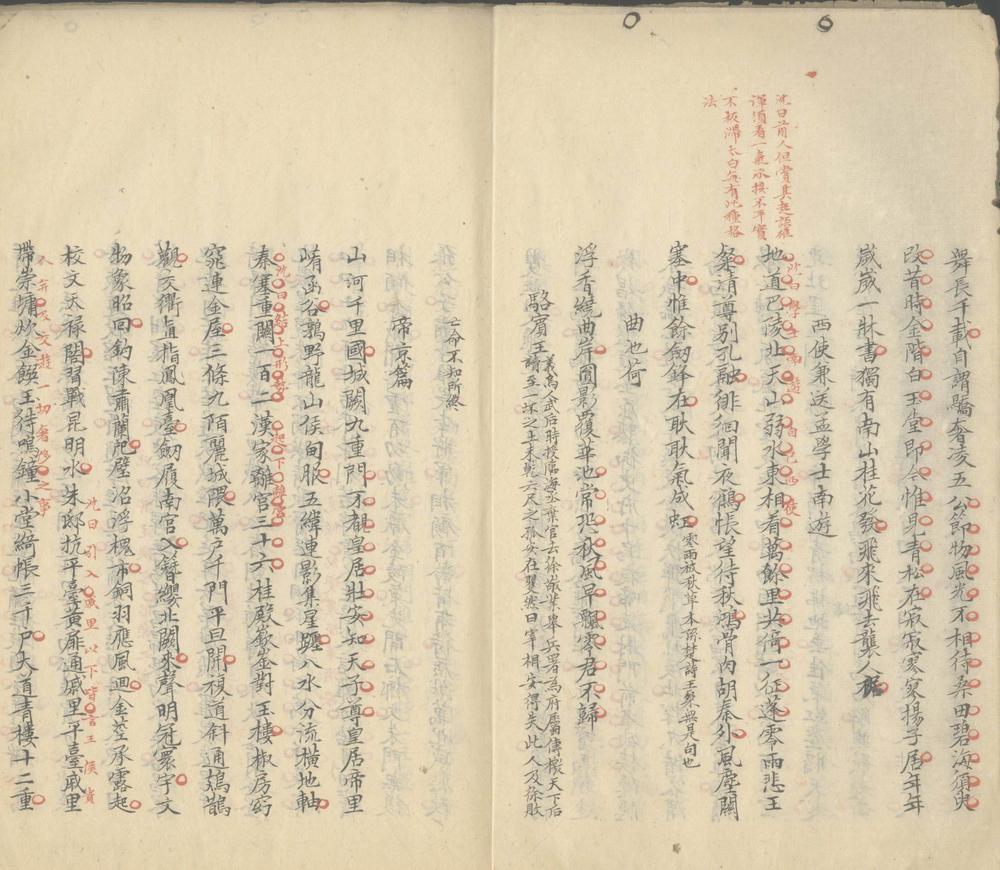 舞長千載自謂驕奢凌五公節物風光不相待桑田碧海須臾
改昔時金階白玉堂即今惟見青松在寂寂寥寥揚子居年年
歲歲一牀書獨有南山桂花發飛來飛去襲人裾
西使兼送孟學士南遊
地道巴陵北天山弱水東相看萬餘里共倚一征蓬零雨悲王
粲清尊別孔融徘徊聞夜鶴悵望待秋鴻骨肉胡秦外風塵關
塞中惟餘劒鋒在耿耿氣成虹
零雨被秋草本孫楚詩王粲無是句也
沈曰前人但賞其起語雄
渾須看一氣承接不平實
不板滯太白每有此種格
法
此句學士南遊
自己西使
曲池荷
浮香繞曲岸圓影覆華池常恐秋風早飄零君不歸
駱賓王
義烏人武后時授臨海丞棄官去徐敬業舉兵署為府屬傳檄天下后
讀至一抔之土未乾六尺之孤安在矍然曰宰相安得失此人及徐敗
亡命不知所終
帝京篇
山河千里國城闕九重門不覩皇居壯安知天子尊皇居帝里
崤函谷鶉野龍山侯甸服五緯連影集星躔八水分流橫地軸
秦塞重關一百二漢家離宮三十六桂殿嶔崟對玉樓椒房窈
沈曰結上形勢
起下離宮
窕連金屋三條九陌麗城隈萬戶千門平旦開複道斜通鳷鵲
觀交衢直指鳳凰臺劒履南宮入簪纓北闕來聲明冠寰宇文
物象昭回鈎陳肅蘭戺璧沼浮槐市銅羽應風迴金莖承露起
校文天祿閣習戰昆明水朱邸抗平臺黃扉通戚里平臺戚里
沈曰引入戚里以下皆言王侯貴
人弃及交遊一切奢侈之事
帶崇墉炊金饌玉待鳴鐘小堂綺帳三千戶大道青樓十二重